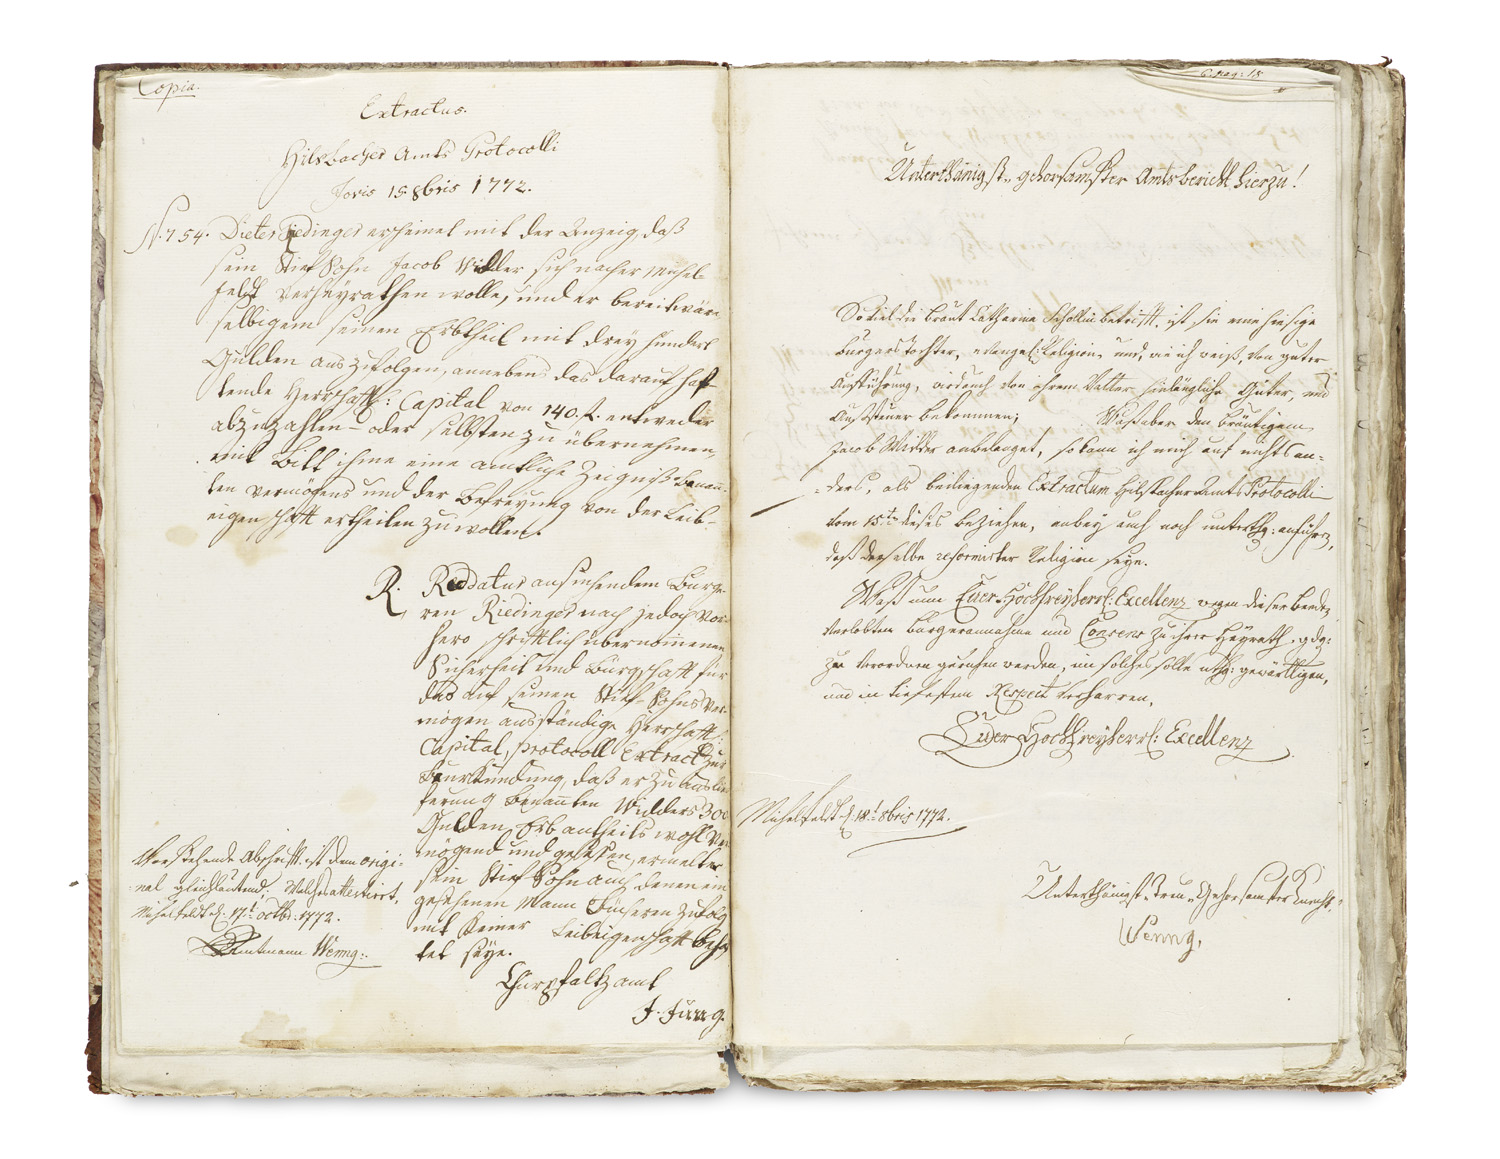 Copia.
Extractus.
Hilsbacher Amts Protocolli
Jovis 15 8bris 1772.
N. 754. Dieter Riedinger erscheinet mit der Anzeig, daß
sein Stief Sohn Jacob Widder sich nacher Michel-
feldt verheyrathen wolle, und er bereit wäre
selbigem seinen Erbtheil mit drey hundert
Gulden auszufolgen, anneben das darauf haf-
tende Herrschaft: Capital von 140. f. entweder
abzuzahlen oder selbsten zu übernehmen,
mit Bitt ihme eine amtliche Zeigniß benan-
ten vermögens und der Befreyung von der Leib-
eigenschaft ertheilen zu wollen.
R. Reddatur ansuchendem Burge-
ren Riedinger nach jedoch vor-
hero schriftlich übernommenen
Sicherheit und Bürgschaft für
das auf seinen Stief-Sohns Ver-
mögen ausständige Herrschaft:
Capital, protocoll Extract zur
Beurkundung, daß er zu Auslie-
ferung benannten Widders 300
Gulden Erbantheils wohl ver-
mögend und gesessen, ermelter
sein Stief Sohn auch denen ein
gesehenen Mann Bücheren zufolg
mit keiner Leibeigenschaft behaf
tet seye.
Churpfaltz amt
J. Jung.
Vorstehende Abschrift ist dem origi-
nal gleichlautend. Welches attestirt.
Michelfeldt d. 17t. octbr. 1772.
Amtmann Wenng.
Unterthänigst- gehorsamster Amtsbericht hierzu!
Soviel die Braut Catharina Schollin betrifft, ist sie eine hiesige
Burgers Tochter, evangel: Religion, und, wie ich weiß, von guter
Aufführung, wird auch von ihrem Vatter hinlängliche Güter, und
Aussteuer bekommen; Was aber den Bräutigam
Jacob Widder anbelanget, so kann ich mich auf nichts an-
ders, als beiliegenden Extractum Hilsbacher Amts Protocolli
vom 15ten dieses beziehen, anbey auch noch unterthg: anführen,
daß derselbe reformirter Religion seye.
Was nun Euer Hochfreyherrl: Excellenz wegen dieser beeden
Verlobten Burgerannahme und Consens zu ihrer Heyrath gdg:
zu verordnen geruhen werden, ein solches solle uthg: gewärttigen,
und in tiefestem Respect verharren,
Euer Hochfreyherrl: Excellenz
Michelfeldt d. 18t 8bris 1772.
Unterthänigst- Treu- Gehorsamster Knecht,
Wenng,